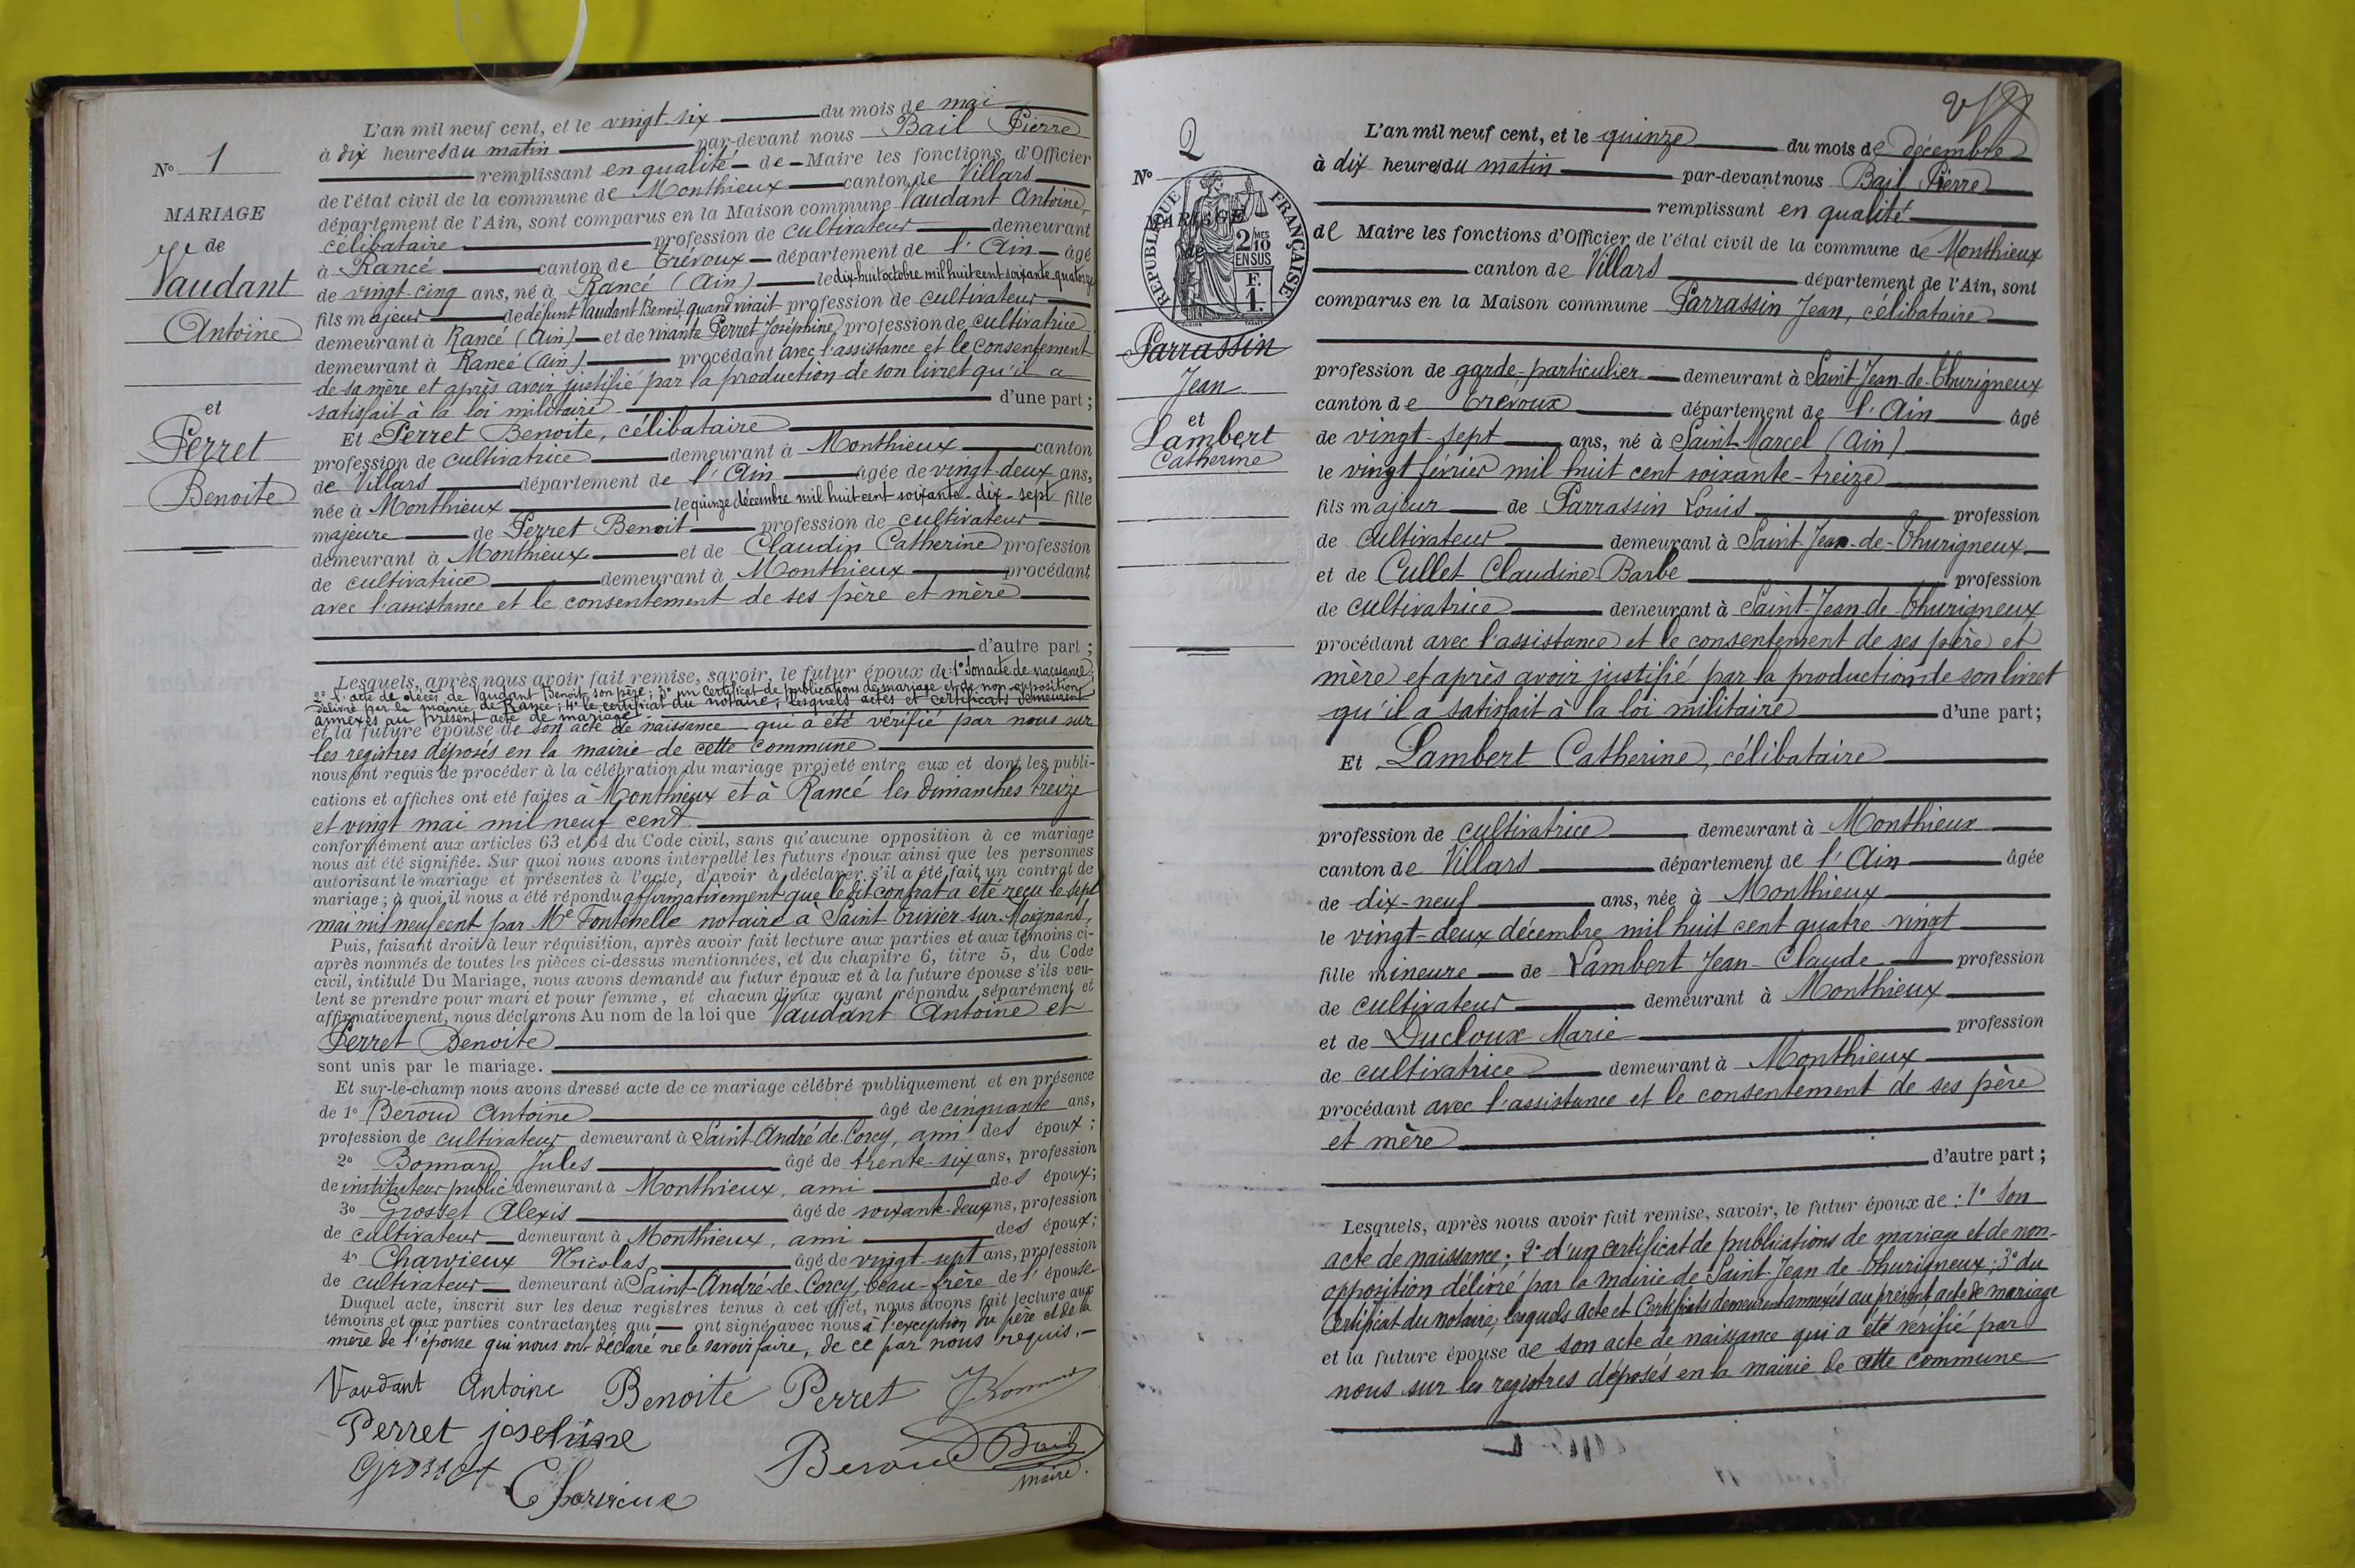 L'an mil neuf cent, et le vingt-six du mois de mai
à dix heures du matin par-devant nous Bail Pierre
remplissant en qualité de Maire les fonctions d'Officier
de l'état civil de la commune de Monthieux canton de Villars
département de l'Ain, sont comparus en la Maison commune Vaudant Antoine,
célibataire profession de cultivateur demeurant
à Rancé canton de Trévoux département de l'Ain âgé
de vingt-cinq ans, né à Rancé (Ain) le dix-huit octobre mil huit cent soixante-quatorze
fils majeur de défunt Vaudant Benoit, quand vivait profession de cultivateur
demeurant à Rancé (Ain) et de vivante Perret Joséphine, profession de cultivatrice
demeurant à Rancé (Ain) procédant avec l'assistance et le consentement
de sa mère et après avoir justifié par la production de son livret qu'il a
satisfait à la loi militaire d'une part;
Et Perret Benoite, célibataire
profession de cultivatrice demeurant à Monthieux canton
de Villars département de l'Ain âgée de vingt-deux ans,
née à Monthieux le quinze décembre mil huit cent soixante-dix-sept fille
majeure de Perret Benoit profession de cultivateur
demeurant à Monthieux et de Claudin Catherine profession
de cultivatrice demeurant à Monthieux procédant
avec l'assistance et le consentement de ses père et mère
d'autre part;
Lesquels, après nous avoir fait remise, savoir, le futur époux de: 1° Son acte de naissance;
2° l'acte de décès de Vaudant Benoit, son père; 3° un certificat de publications de mariage et de non-opposition
délivré par la mairie de Rancé; 4° le certificat du notaire; lesquels actes et certificats demeurent
annexés au présent acte de mariage
et la future épouse de son acte de naissance qui a été vérifié par nous sur
les registres déposés en la mairie de cette commune
nous ont requis de procéder à la célébration du mariage projeté entre eux et dont les publi-
cations et affiches ont été faites à Monthieux et à Rancé les dimanches treize
et vingt mai mil neuf cent
conformément aux articles 63 et 64 du Code civil, sans qu'aucune opposition à ce mariage
nous ait été signifiée. Sur quoi nous avons interpellé les futurs époux ainsi que les personnes
autorisant le mariage et présentes à l'acte, d'avoir à déclarer s'il a été fait un contrat de
mariage; à quoi il nous a été répondu affirmativement que le dit contrat a été reçu le sept
mai mil neuf cent par Me Fontenelle notaire à Saint-Trivier-sur-Moignans,
Puis, faisant droit à leur réquisition, après avoir fait lecture aux parties et aux témoins ci-
après nommés de toutes les pièces ci-dessus mentionnées, et du chapitre 6, titre 5, du Code
civil, intitulé Du Mariage, nous avons demandé au futur époux et à la future épouse s'ils veu-
lent se prendre pour mari et pour femme, et chacun d'eux ayant répondu séparément et
affirmativement, nous déclarons Au nom de la loi que Vaudant Antoine et
Perret Benoite
sont unis par le mariage.
Et sur-le-champ nous avons dressé acte de ce mariage célébré publiquement et en présence
de 1° Beroud Antoine âgé de cinquante ans,
profession de cultivateur demeurant à Saint André de Corcy, ami des époux;
2° Bonnard Jules âgé de trente-six ans, profession
de instituteur public demeurant à Monthieux, ami des époux;
3° Grosset Alexis âgé de soixante-deux ans, profession
de cultivateur demeurant à Monthieux, ami des époux;
4° Charvieux Nicolas âgé de vingt-sept ans, profession
de cultivateur demeurant à Saint-André-de-Corcy, beau-frère de l'épouse
Duquel acte, inscrit sur les deux registres tenus à cet effet, nous avons fait lecture aux
témoins et aux parties contractantes qui ont signé avec nous à l'exception du père et de la
mère de l'épouse qui nous ont déclaré ne le savoir faire, de ce par nous requis.
Vaudant Antoine Benoite Perret JBonnard
Perret joséhine
Grosset Beroud Bail
Charvieux maire.
N° 1
MARIAGE
de
Vaudant
Antoine
et
Perret
Benoite
2
N° 2
MARIAGE
de
RÉPUBLIQUE FRANÇAISE
2/10 MES
EN SUS
F.
1.
Parrassin
Jean
et
Lambert
Catherine
L'an mil neuf cent, et le quinze du mois de décembre
à dix heures du matin par-devant nous Bail Pierre
remplissant en qualité
de Maire les fonctions d'Officier de l'état civil de la commune de Monthieux
canton de Villars département de l'Ain, sont
comparus en la Maison commune Parrassin Jean, célibataire
profession de garde-particulier demeurant à Saint-Jean-de-Thurigneux
canton de Trévoux département de l'Ain âgé
de vingt-sept ans, né à Saint-Marcel (Ain)
le vingt février mil huit cent soixante-treize
fils majeur de Parrassin Louis profession
de cultivateur demeurant à Saint Jean-de-Thurigneux
et de Cullet Claudine Barbe profession
de cultivatrice demeurant à Saint-Jean-de-Thurigneux
procédant avec l'assistance et le consentement de ses père et
mère et après avoir justifié par la production de son livret
qu'il a satisfait à la loi militaire d'une part;
Et Lambert Catherine, célibataire
profession de cultivatrice demeurant à Monthieux
canton de Villars département de l'Ain âgée
de dix-neuf ans, née à Monthieux
le vingt-deux décembre mil huit cent quatre-vingt
fille mineure de Lambert Jean-Claude profession
de cultivateur demeurant à Monthieux
et de Ducloux Marie profession
de cultivatrice demeurant à Monthieux
procédant avec l'assistance et le consentement de ses père
et mère
d'autre part;
Lesquels, après nous avoir fait remise, savoir, le futur époux de: 1° Son
acte de naissance; 2° d'un certificat de publications de mariage et de non-
opposition délivré par la mairie de Saint-Jean de Thurigneux; 3° du
Certificat du notaire; lesquels acte et Certificats demeurent annexés au présent acte de mariage
et la future épouse de son acte de naissance qui a été vérifié par
nous sur les registres déposés en la mairie de cette commune